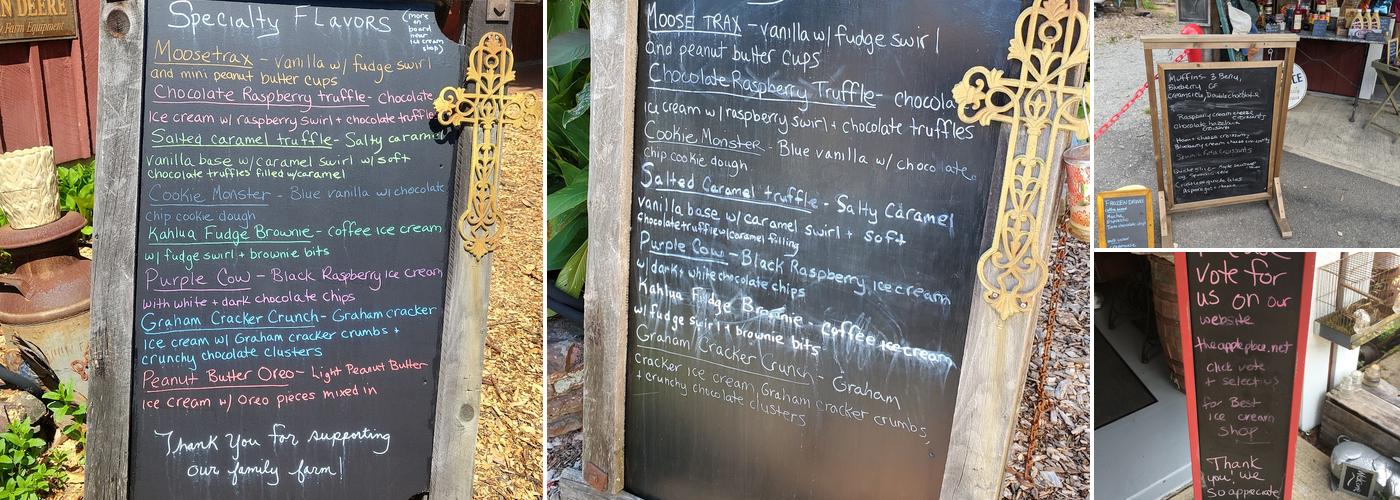 N DEERE
Farm Equipment
Specialty Flavors
(more
on
board
near
ice cream
shop)
Moosetrax - vanilla w/ fudge swirl
and mini peanut butter cups
Chocolate Raspberry truffle - Chocolate
Ice cream w/ raspberry swirl + chocolate truffle
Salted caramel truffle - Salty caramel
vanilla base w/ caramel swirl w/ soft
chocolate truffles filled w/caramel
Cookie Monster - Blue vanilla w/ chocolate
chip cookie dough
Kahlua Fudge Brownie - coffee ice cream
w/ fudge swirl + brownie bits
Purple Cow - Black Raspberry Ice cream
with white + dark chocolate chips
Graham Cracker Crunch - Graham cracker
Ice cream w/ Graham cracker crumbs +
crunchy chocolate clusters
Peanut Butter Oreo - Light Peanut Butter
ice cream w/ Oreo pieces mixed in
Thank You for supporting
our family farm!
MOOSE TRAX - vanilla w/ fudge swirl
and peanut butter cups
Chocolate Raspberry Truffle - chocola
Ice cream w/ raspberry swirl + chocolate truffles
Cookie Monster - Blue vanilla w/ chocolate
chip cookie dough
Salted Caramel truffle - Salty Caramel
vanilla base w/ caramel swirl + soft
chocolate truffle w/caramel filling
Purple Cow - Black Raspberry ice cream
w/ dark + white chocolate chips
Kahlua Fudge Brownie - coffee ice cream
w/ fudge swirl + brownie bits
Graham Cracker Crunch - Graham
cracker ice cream, Graham cracker crumbs,
+ crunchy chocolate clusters
Muffins - 3 Berry,
Blueberry GF
Creamsicle, Double chocolate
Raspberry cream cheese
croissants
Chocolate hazelnut
croissants
Ham + cheese croissants
Blueberry cream cheese croissants
Spinach Feta Croissants
Quiche
Crustless quiche
asparagus + cheese
FROZEN DRINKS
Mocha,
vote for
us on our
website
theappleplace.net
click vote
+ select us
for Best
ice cream
shop
Thank
you! We
so appreciate